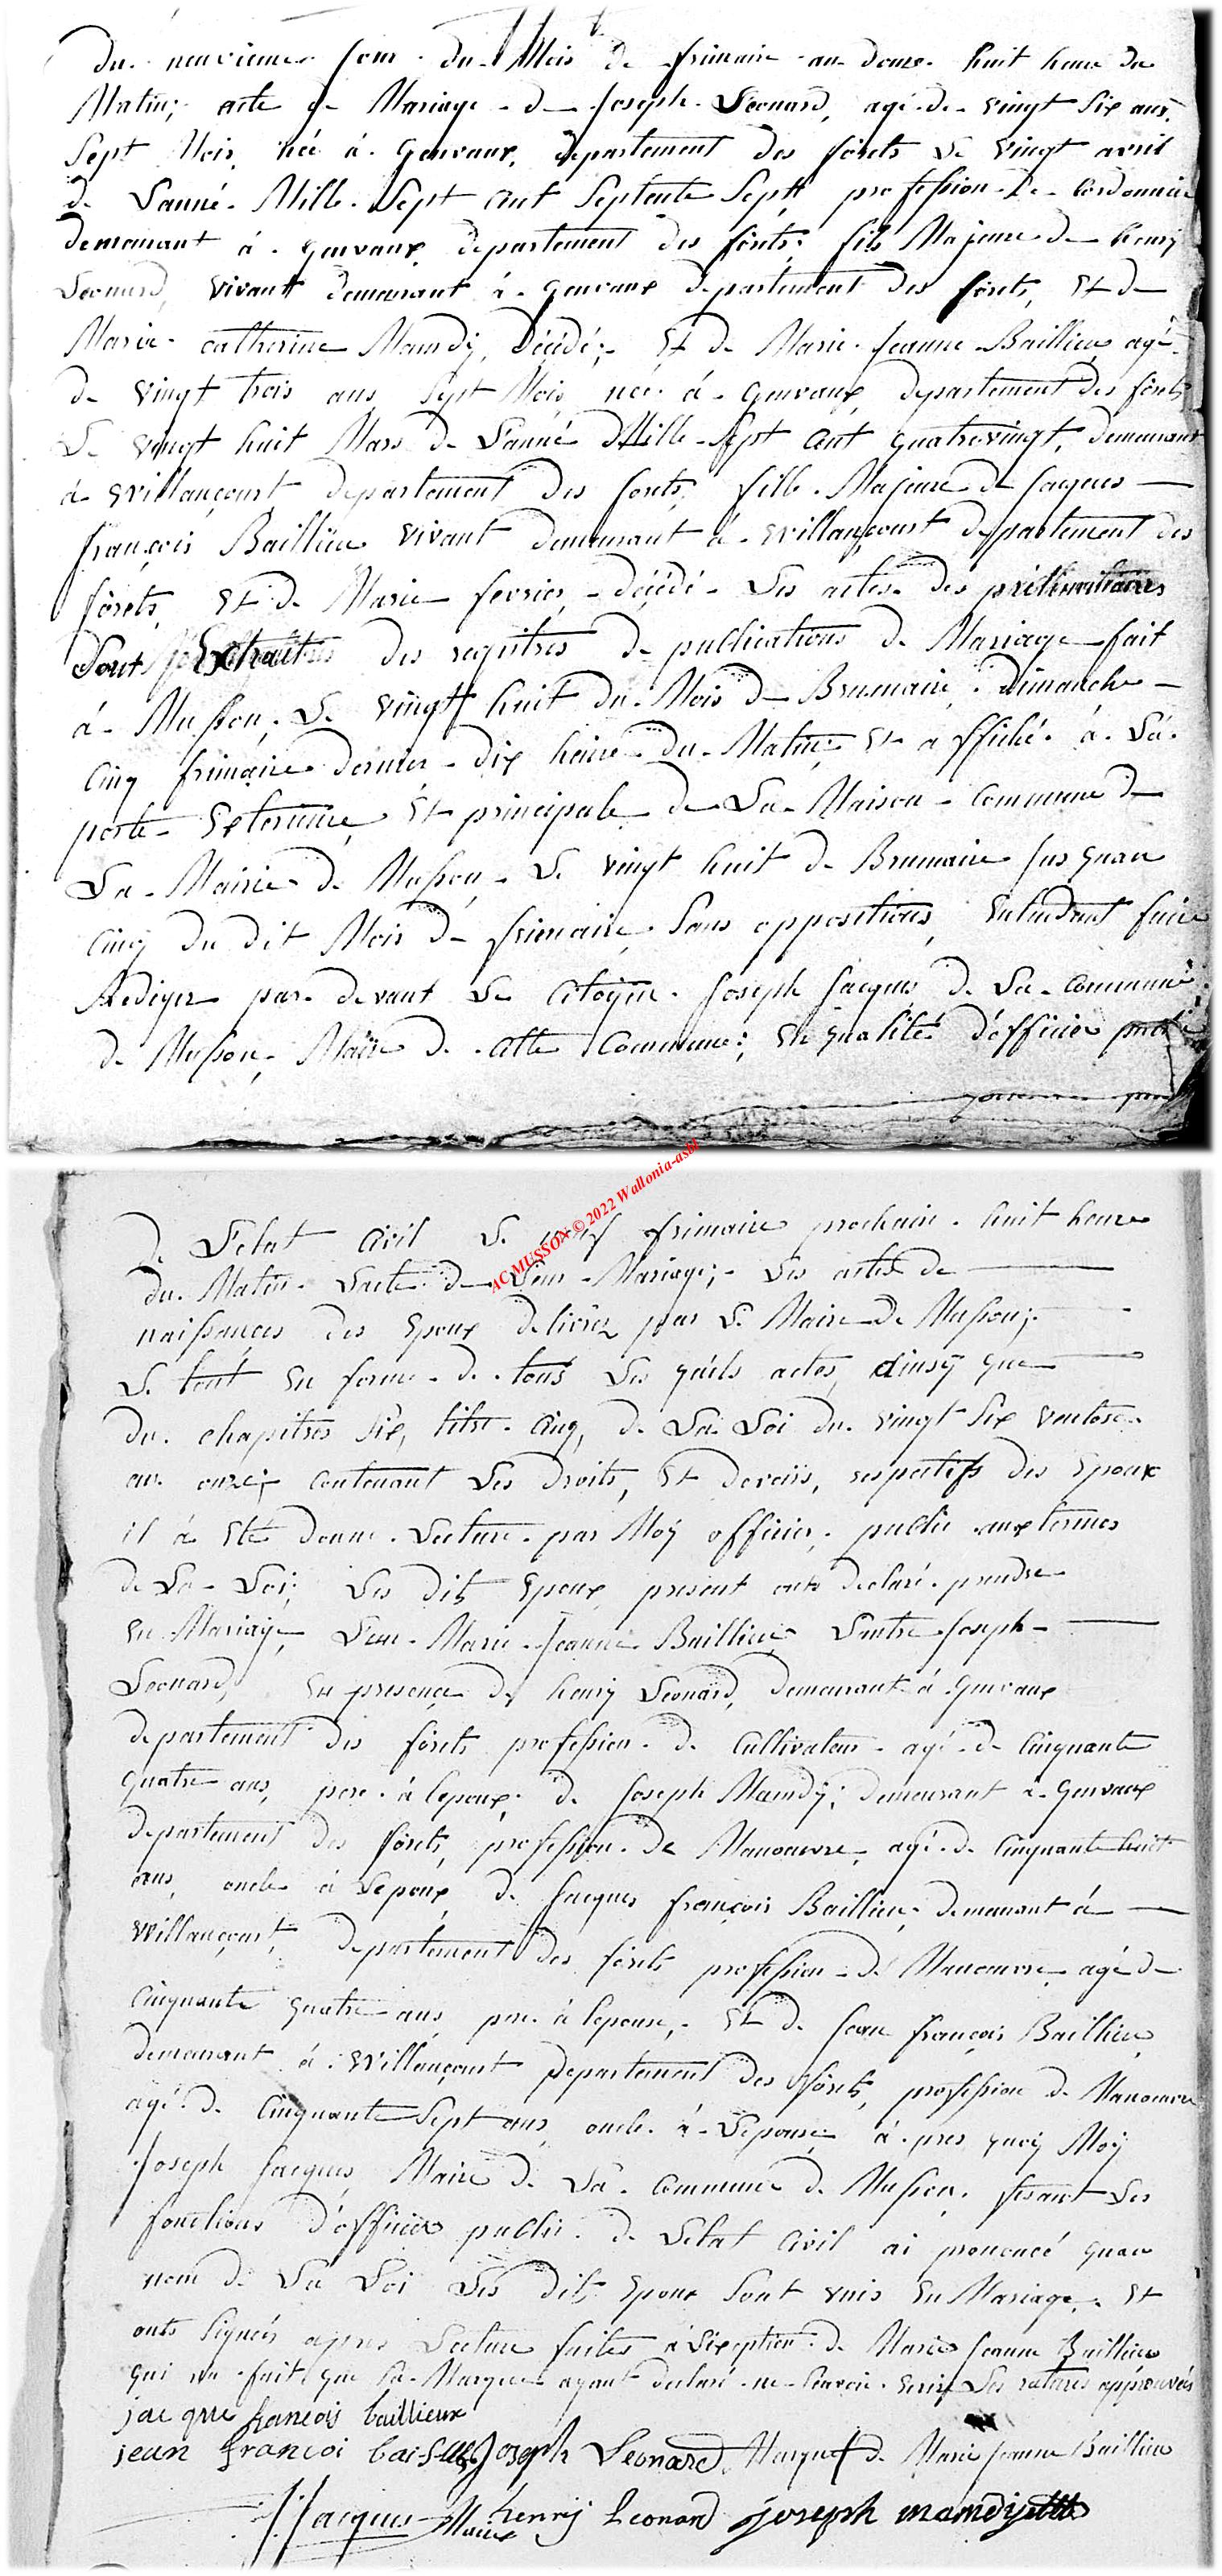 du neuvieme jour du Mois de frimaire an douze huit heure du
Matin; acte de Mariage de Joseph Leonard, agé de vingt Six ans,
Sept Mois, née á Gorvaux, departement des forets Le vingt avril
de Lanné Mille Sept Cent Septente Sept profession de Cordonnier
demeurant á gorvaux departement des forets, fils Majeure de henry
Leonard, vivant demeurant á gorvaux departement des forets, Et de
Marie catherine Mamdy, décédé; Et de Marie Jeanne Baillieu agé
de vingt trois ans Sept Mois née á gorvaux, departement des forets
Le vingt huit Mars de Lanné Mille Sept Cent quatrevingt, demeurant
á Willançourt departement des forets, fille Majeure de Jacques
françois Baillieu vivant demeurant á Willançourt departement des
forets, Et de Marie fevrier, décédé Les actes des préliminaires
Sont Extraits des registres de publications de Mariage fait
á Musson, Le vingt huit du Mois de Brumaire, dimanche
Cinq frimaire dernier dix heure du Matin; Et affiché á La
porte Exterieure Et principale de La Maison Commune de
La Mairie de Musson Le vingt huit de Brumaire Jusquau
Cinq du dit Mois de frimaire Sans oppositions, Entendant faire
Rediger par devant Le Citoyen Joseph Jacques de La Commune
de Musson, Maire de Cette Commune; En qualité d'officier
de L'etat Civil Le neuf frimaire prochain huit heure
du Matin Lacte de Leur Mariage; Les actes de
naissances des Epoux delivrez par Le Maire de Musson;
Le tout En forme de tous Les quels actes, ainsy que
du chapitres Six, titre Cinq, de La Loi du vingt Six ventose
an onze; Contenant Les droits, Et devoirs, respectifs des Epoux
il á Eté donne Lecture par Moy officier public aux termes
de La Loi; Les dits Epoux present onts declaré prendre
En Mariage, L'un Marie Jeanne Baillieu L'autre Joseph
Leonard, En presençe de henry Leonard, demeurant á Gorvaux
departement des forets profession de Cultivateur agé de Cinquante
quatre ans, pere á lepoux; de Joseph Mamdy; demeurant á Gorvaux
departement des forets, profession de Manoeuvre, agé de Cinquante huit
ans, oncle á Lepoux, de Jacques françois Baillieu; demeurant á
Willançourt, departement des forets profession de Manoeuvre agé de
Cinquante quatre ans, pere á lepouse; Et de Jean françois Baillieu
demeurant á Willançourt departement des forets, profession de Manoeuvre
agé de Cinquante Sept ans, oncle á Lepouse á pres quoy Moy
Joseph Jacques Maire de La Commune de Musson, fesant Les
fonctions d'officier public de Letat Civil ai prononcé quau
nom de La Loi Les dits Epoux Sont unis En Mariage, Et
onts Signéz apres Lecture faites á Lexeption de Marie Jeanne Baillieu
qui na fait que Sa Marque ayant declaré ne Scavoir Ecrire Les ratures appróuvés
jacque francois baillieux
jean francoi Joseph Leonard Marque de Marie Jeanne Baillieu
JJacques Maire henry Leonard joseph mamdy
AC MUSSON © 2022 Wallonia-asbl